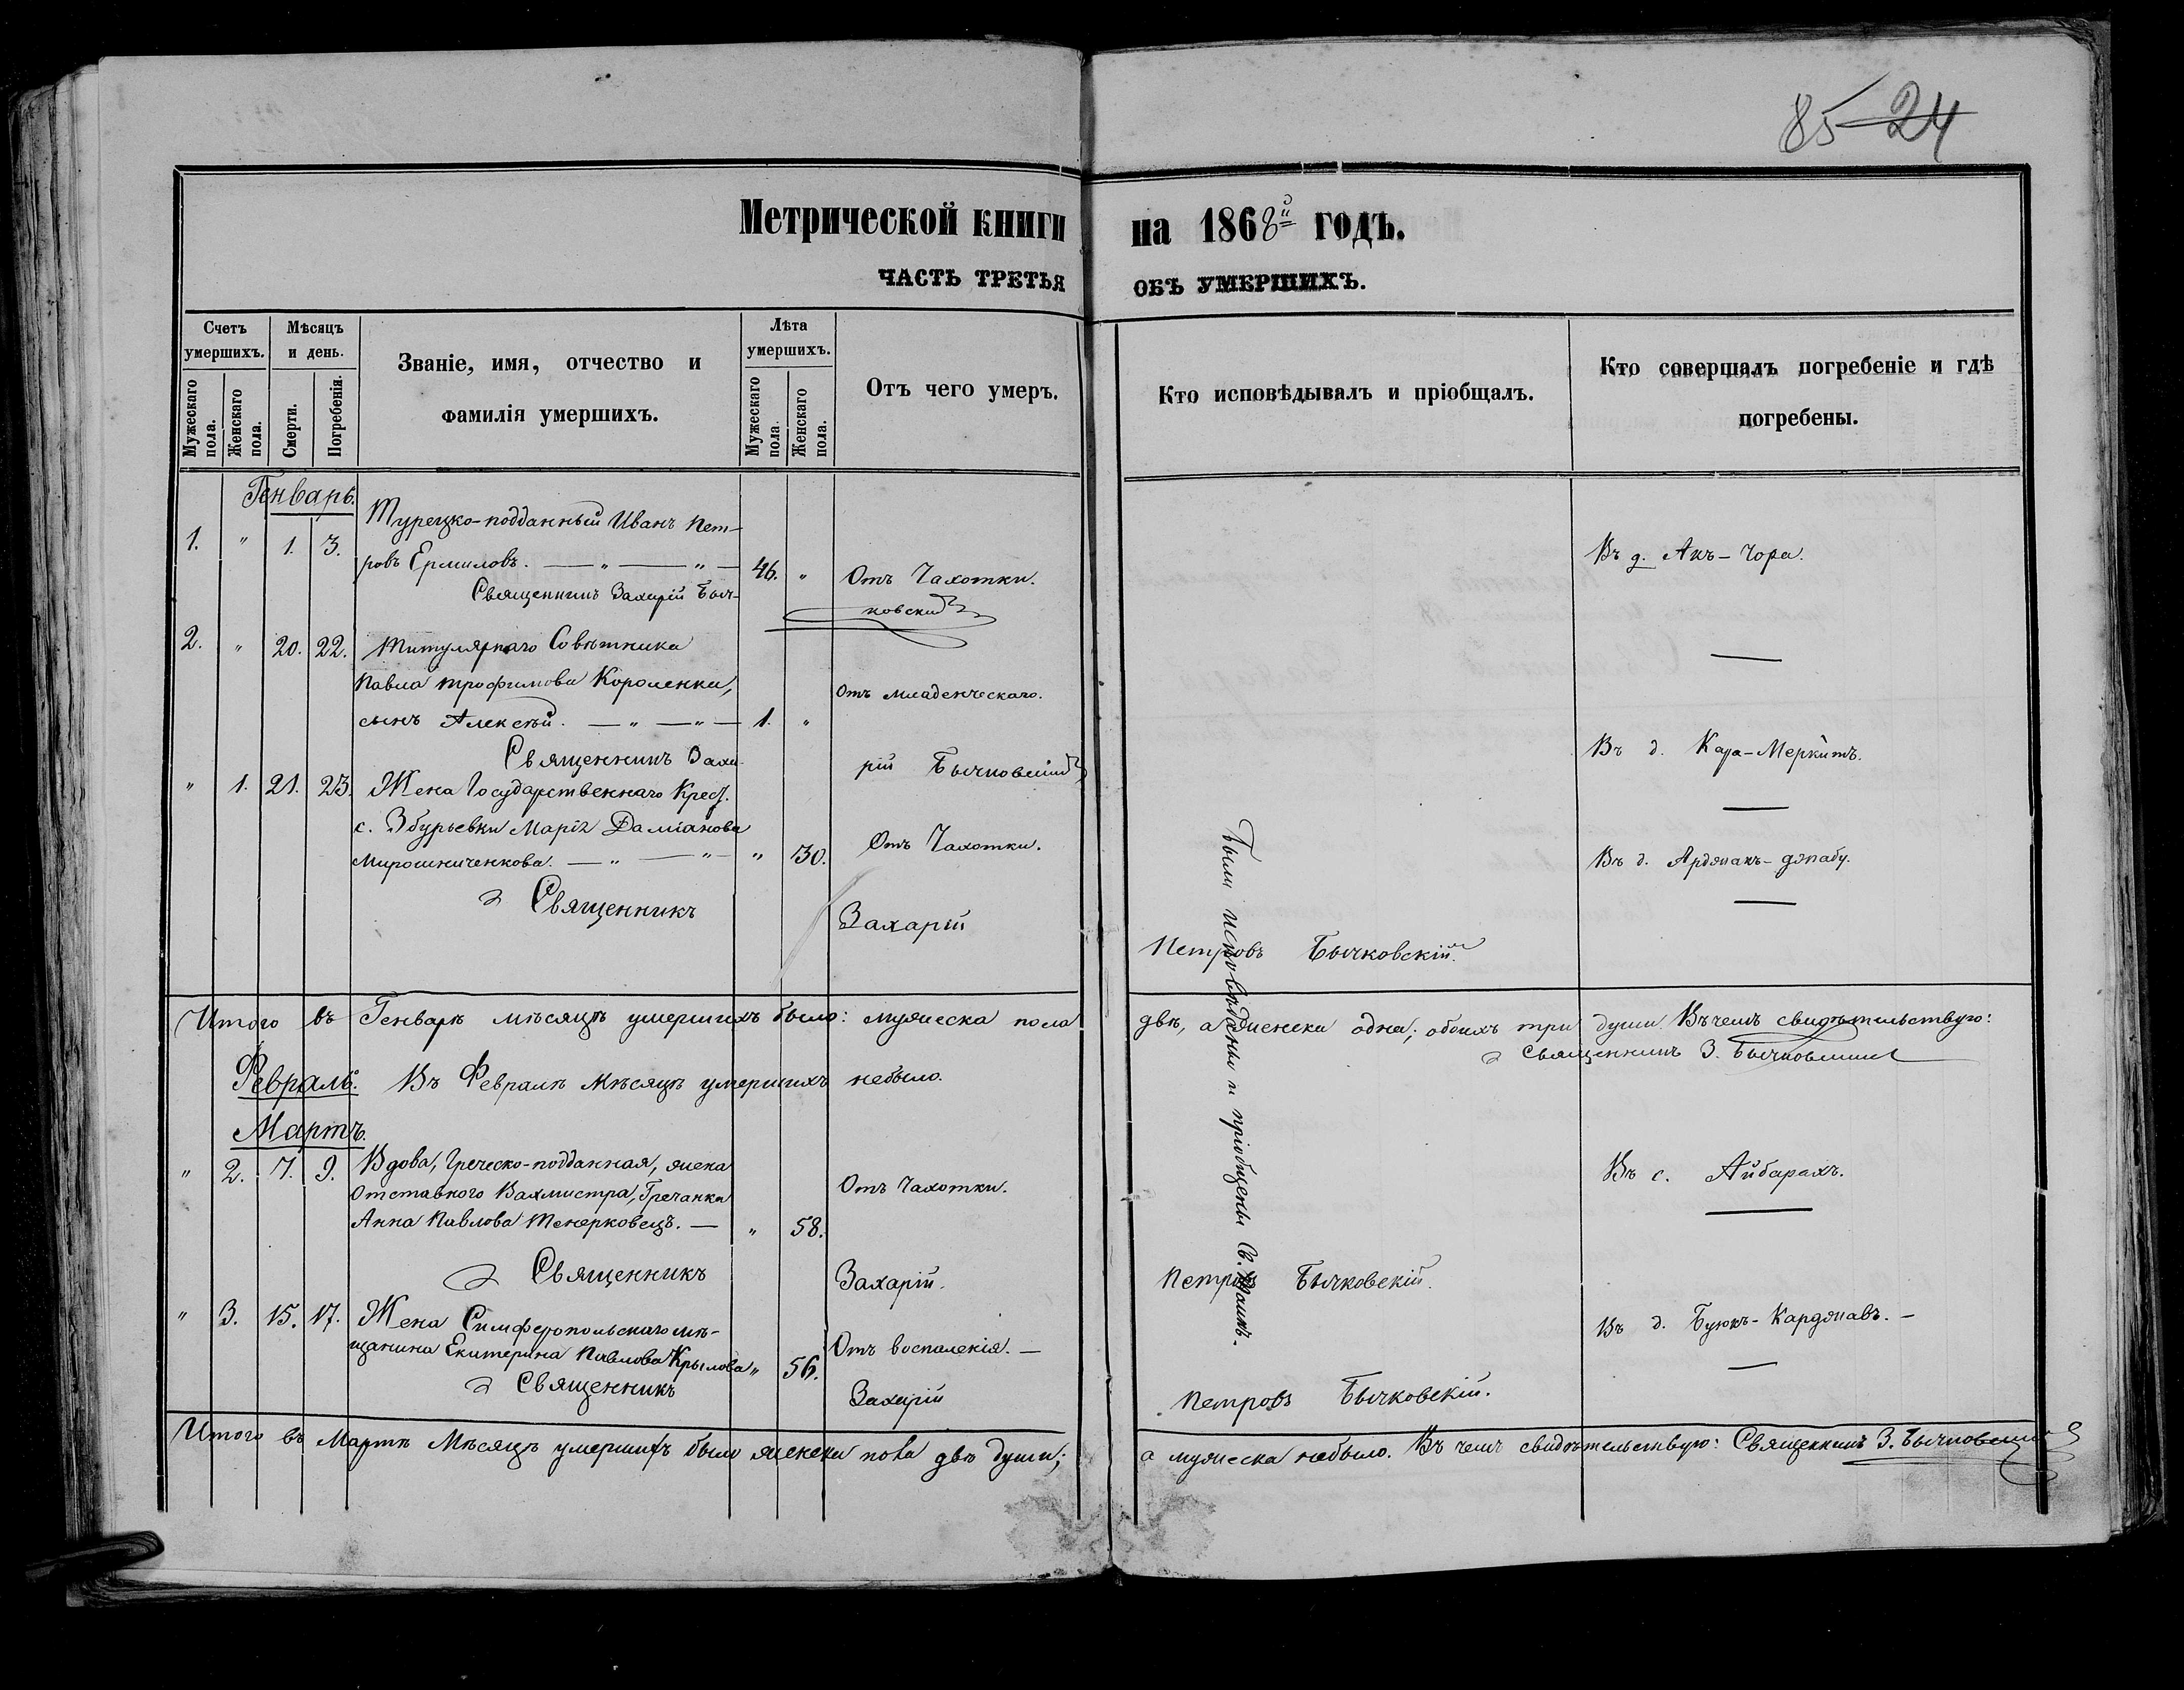 85 24
Метрической книги на 1868й годъ.
ЧАСТЬ ТРЕТЬЯ ОБЪ УМЕРШИХЪ.
Счетъ умершихъ.
Мужескаго пола.
Женскаго пола.
Мѣсяцъ и день.
Смерти.
Погребенія.
Званіе, имя, отчество и
фамилія умершихъ.
Лѣта умершихъ.
Мужескаго пола.
Женскаго пола.
Отъ чего умеръ.
Кто исповѣдывалъ и пріобщалъ.
Кто совершалъ погребеніе и гдѣ
погребены.
Генварь.
1. " 1. 3. Турецко-подданный Иванъ Пет-
ровъ Ермиловъ. — " — " — 46. " Отъ Чахотки. Въ д. Акъ-Чора.
Священникъ Захарій Быч-
ковскій
2. " 20. 22. Титулярнаго Совѣтника
Павла Трофимова Короленки, Отъ младенческаго.
сынъ Алексѣй. — " — " — 1. " Въ д. Кара-Меркитъ.
Священникъ Заха-
рій Бычковскій
" 1. 21. 23. Жена Государственнаго Крест.
с. Збурьевки Марія Даміанова
Мирошниченкова. — " — " — " 30. Отъ Чахотки. Въ д.
Священникъ Захарій Петровъ Бычковскій.
Были исповѣданы и пріобщены Св. Таинъ.
Итого въ Генварѣ мѣсяцѣ умершихъ было: мужеска пола двѣ, а женска одна; обоихъ три души. Въ чемъ свидѣтельствую:
Священникъ З. Бычковскій
Февраль. Въ Февралѣ Мѣсяцѣ умершихъ небыло.
Мартъ.
" 2. 7. 9. Вдова, Греческо-подданная, жена
Отставного Вахмистра, Гречанка Отъ Чахотки. Въ с. Айбарахъ.
Анна Павлова — " 58.
Священникъ Захарій. Петровъ Бычковскій.
" 3. 15. 17. Жена Симферопольскаго мѣ-
щанина Екатерина Павлова Крылова " 56. Отъ воспаленія. — Въ д. Буюкъ- —
Священникъ Захарій Петровъ Бычковскій.
Итого въ Мартѣ Мѣсяцѣ умершихъ было женска пола двѣ души; а мужеска небыло. Въ чемъ свидѣтельствую: Священникъ З. Бычковскій